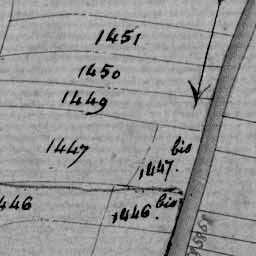 1451
1450
1449
1447
bis
1447.
446
bis
1446.